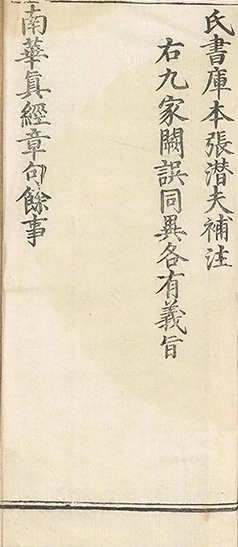 氏書庫本張潜夫補注
右九家闕誤同異各有義旨
南華真經章句餘事